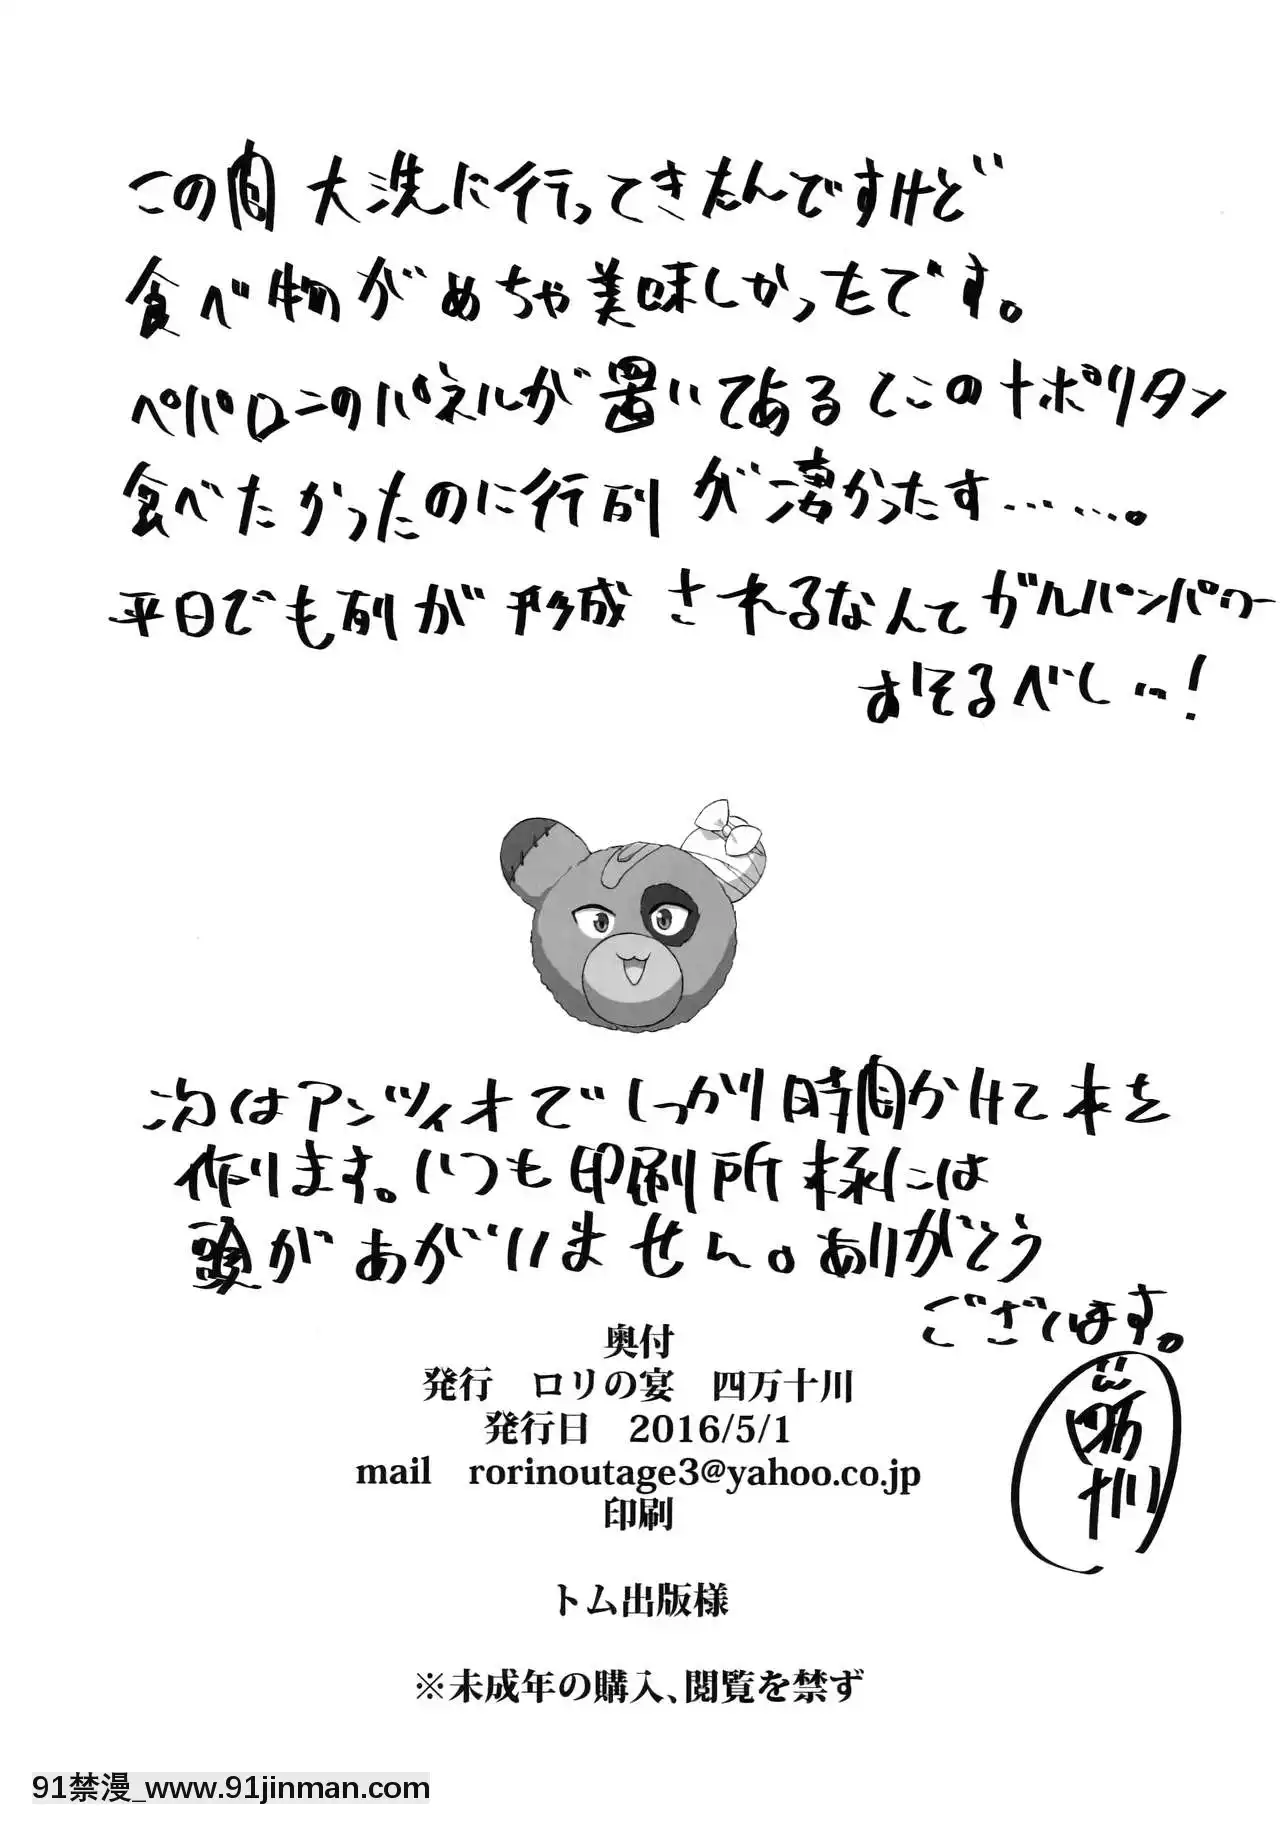 この間 大洗に行ってきたんですけど
食べ物がめちゃ美味しかったです。
ペパロニのパネルが置いてあるとこのナポリタン
食べたかったのに行列が凄かったす……。
平日でも列が形成されるなんてガルパンパワー
おそるべし…!
次はアンツィオでしっかり時間かけて本を
作ります。いつも印刷所様には
頭があがいません。ありがとう
ございます。
四万十川
奥付
発行 ロリの宴 四万十川
発行日 2016/5/1
mail rorinoutage3@yahoo.co.jp
印刷
トム出版様
※未成年の購入、閲覧を禁ず
91禁漫_www.91jinman.com